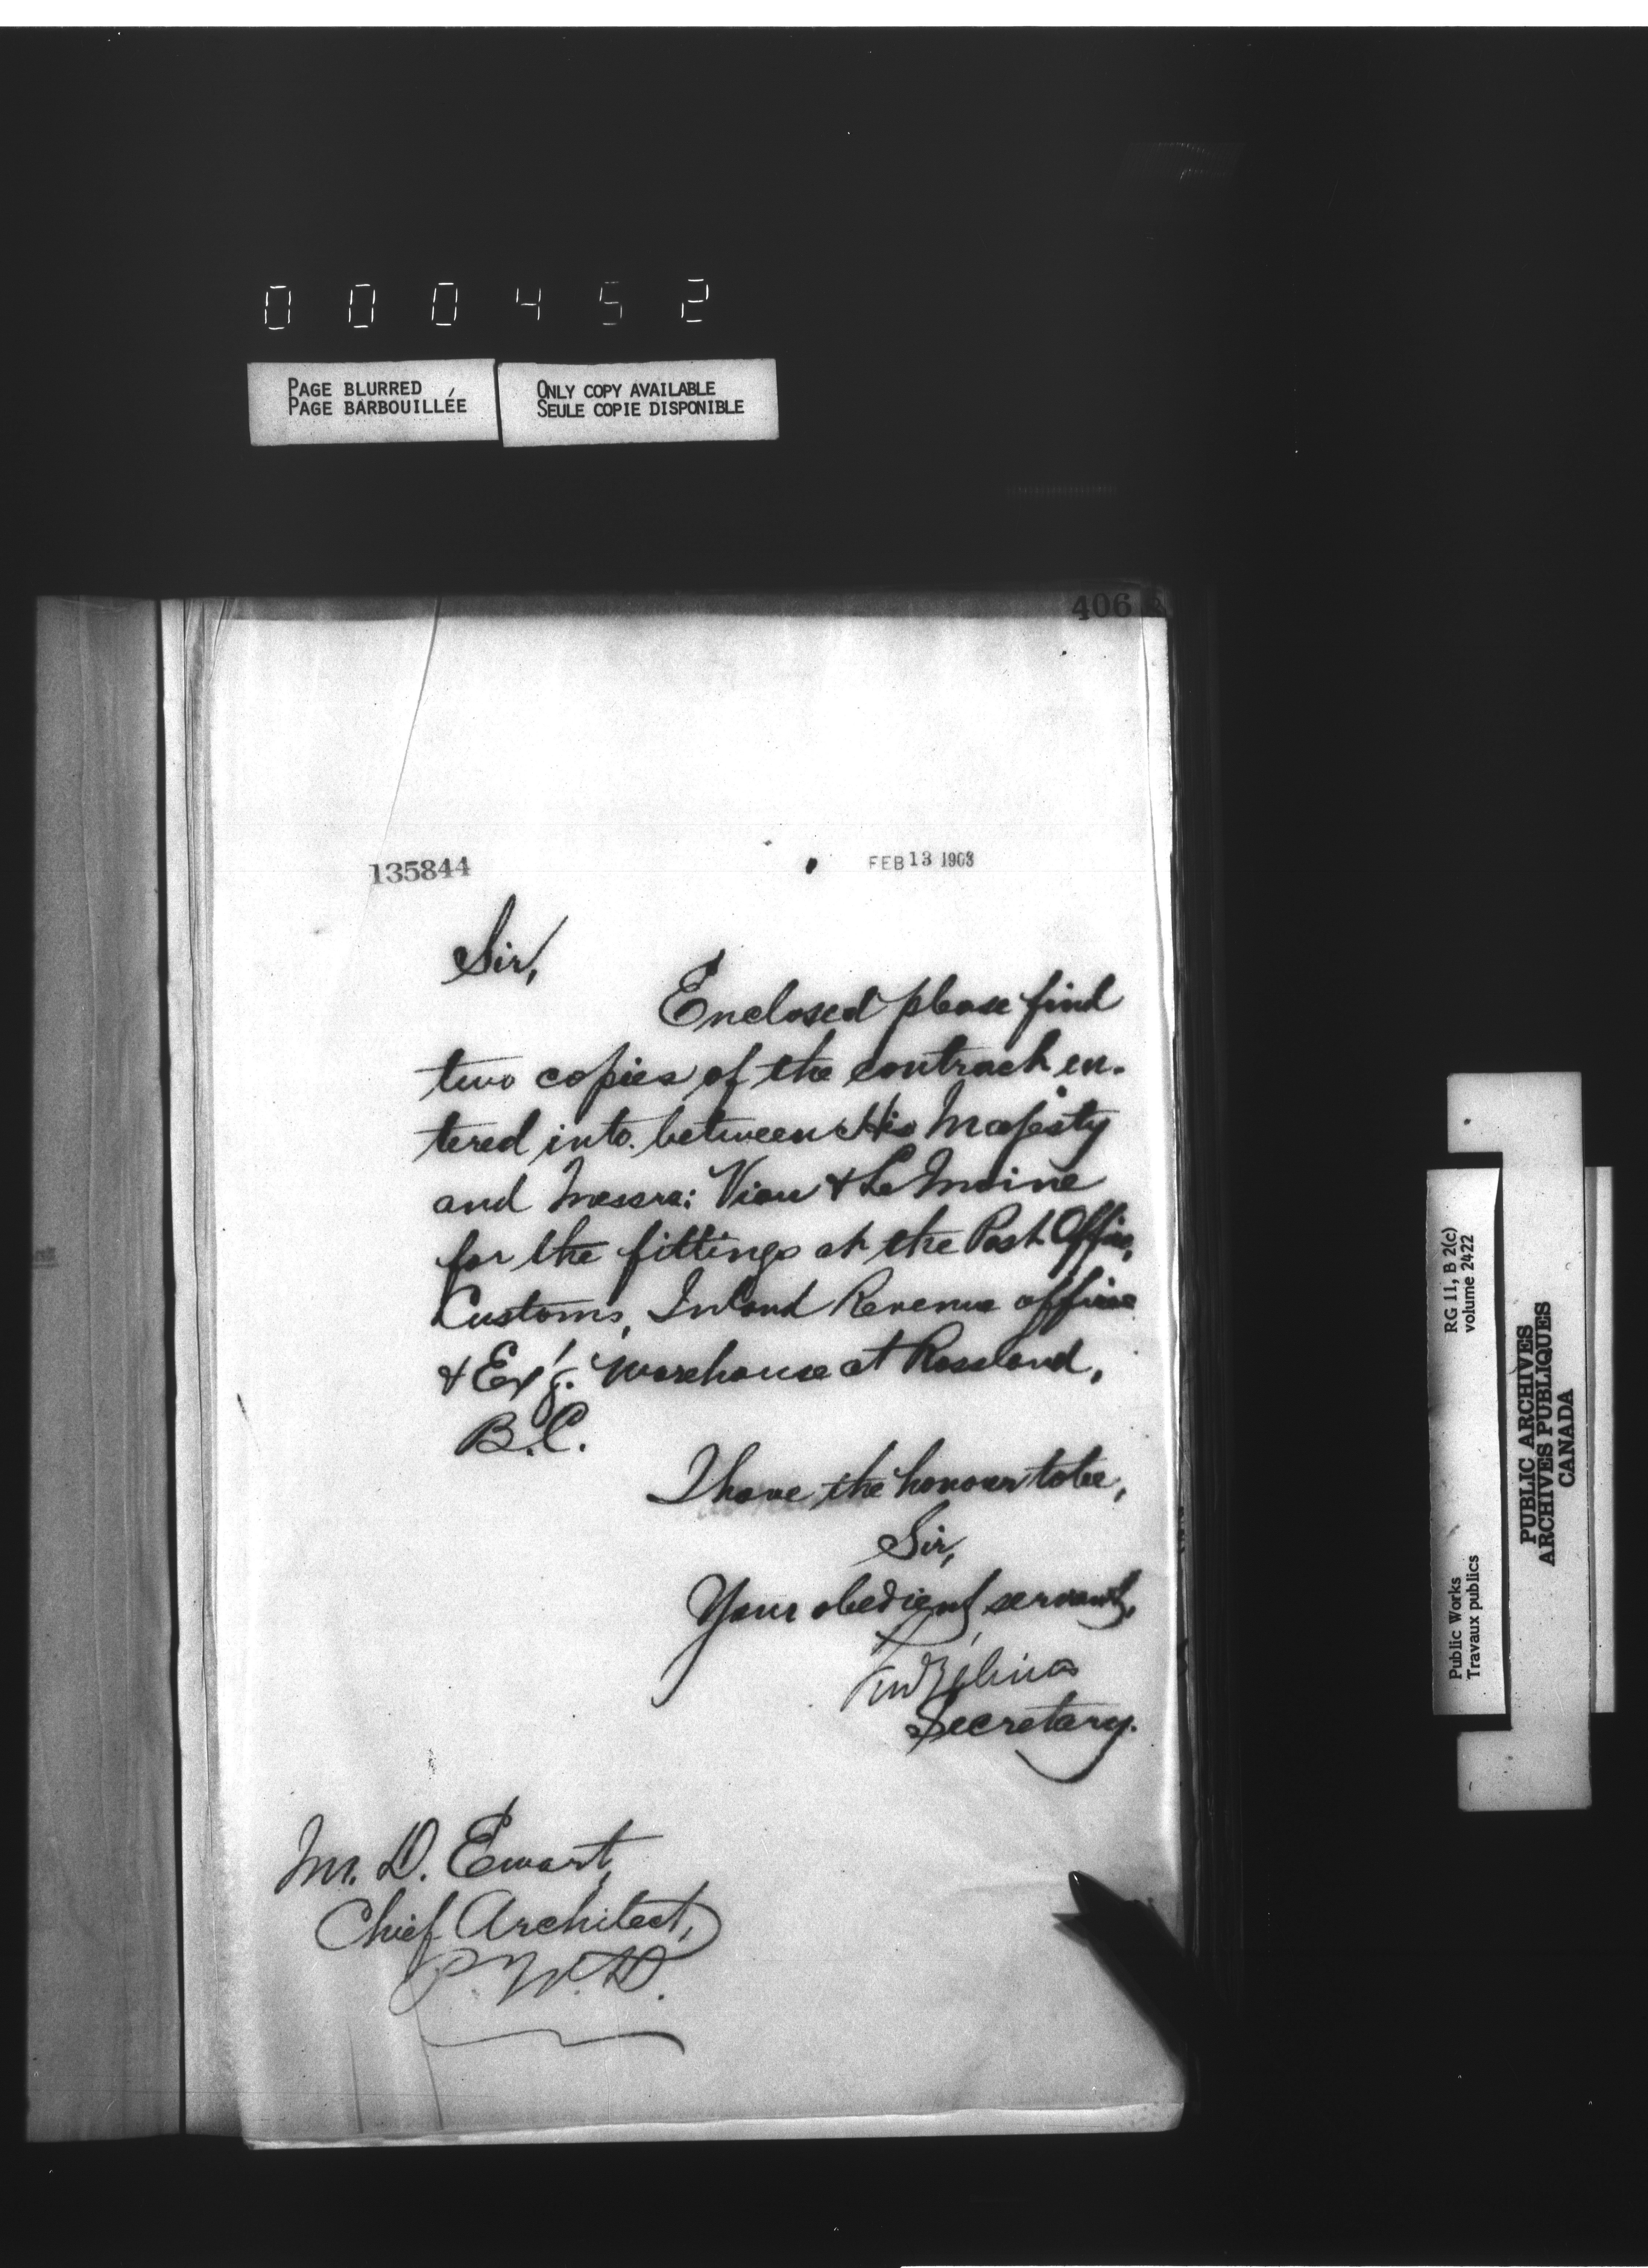 000452
PAGE BLURRED
PAGE BARBOUILLÉE
ONLY COPY AVAILABLE
SEULE COPIE DISPONIBLE
406
135844
FEB 13 1903
Sir,
Enclosed please find
two copies of the contract en-
tered into between His Majesty
and Messrs: Viau & LeMoine
for the fittings at the Post Office,
Customs, Inland Revenue office
& Ex'g. Warehouse at Rossland,
B.C.
I have the honour to be,
Sir,
Your obedient servant,
Secretary.
Mr. D. Ewart,
Chief Architect,
P.W.D.
RG 11, B 2(c)
volume 2422
Public Works
Travaux publics
PUBLIC ARCHIVES
ARCHIVES PUBLIQUES
CANADA